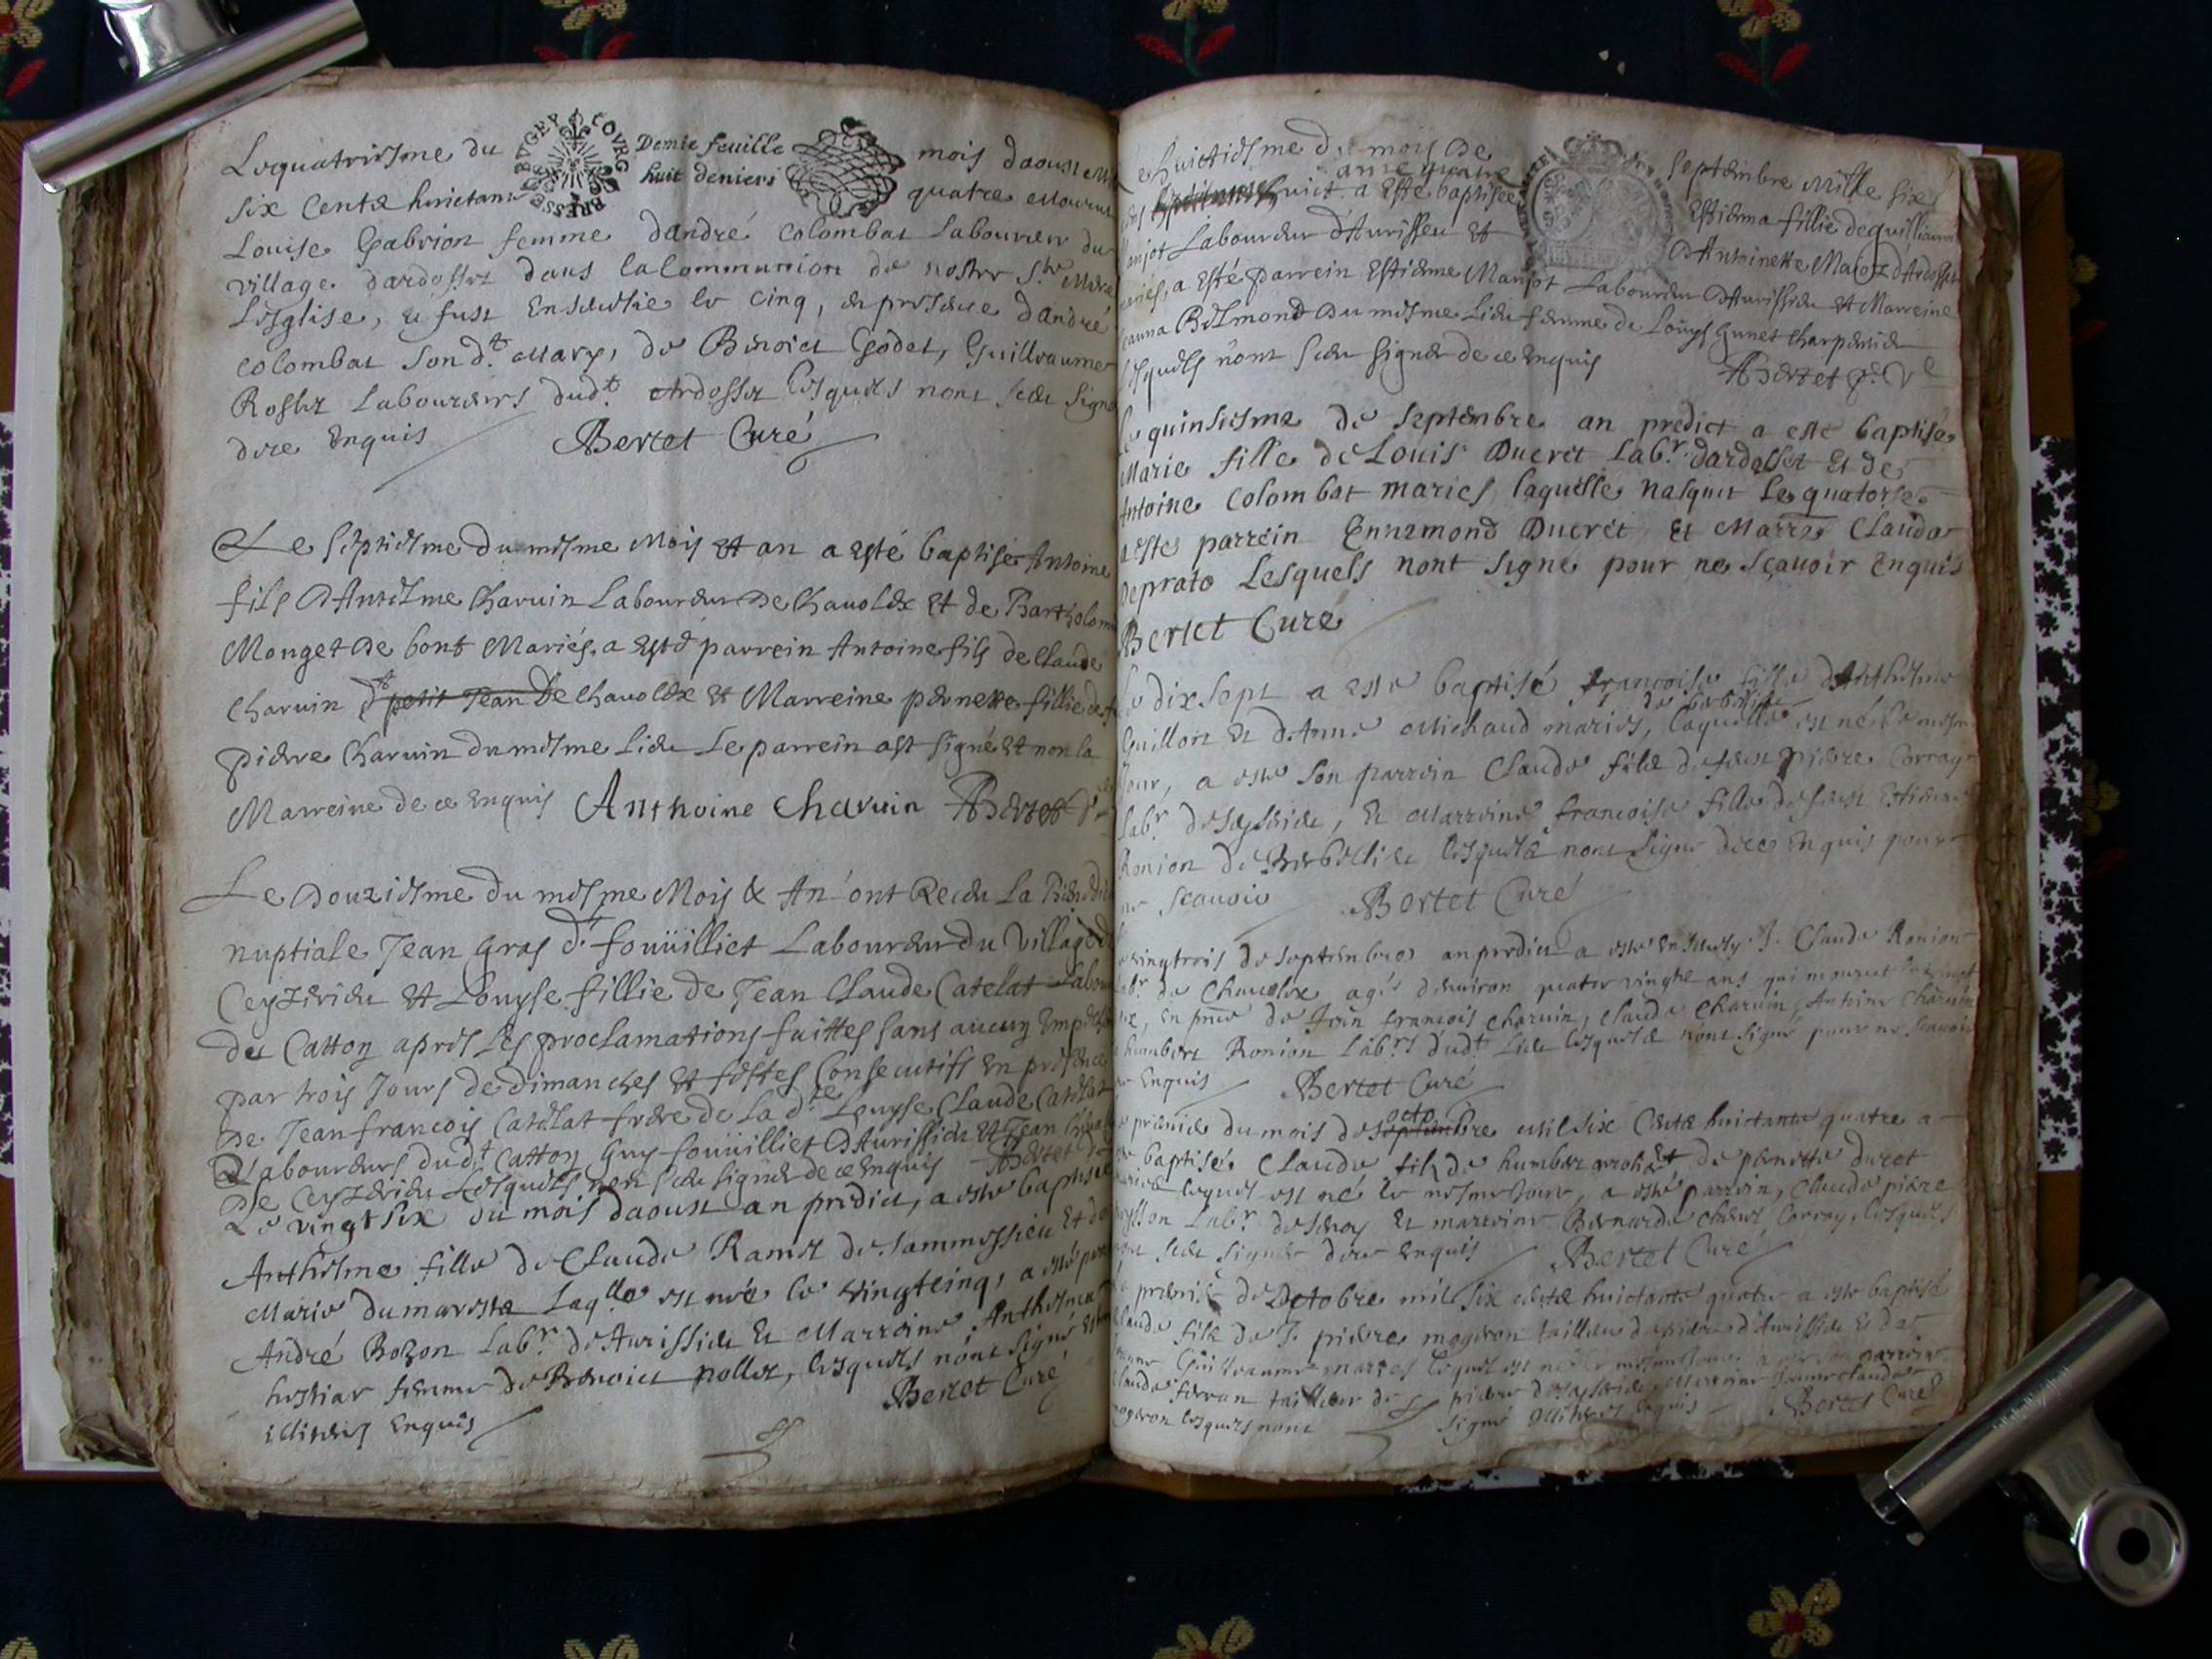 Le quatriesme du mois daoust
six cents huictante quatre mourut
Louise Gabrion femme dandré Colombat Laboureur du
village dardosset dans la Communion de nostre Ste Mere
Lesglise, et fust ensevelie le cinq, en presence dandré
Colombat son dt mary, de Benoict Godet, Guilleaume
Roslet Laboureurs dudt Ardosset lesquels nont sceu signer
dece enquis Bertet Curé
BVGEY BOVRG BRESSE
Demie feuille
huit deniers
Le septiesme du mesme Mois et an a esté baptisé Antoine
fils d'Antelme Charvin Laboureur de Chavolex et de Bartholom
Monget de bons Mariés, a esté parrein Antoine fils de Claude
Charvin dt petit Jean de Chavolex et Marreine pernette fillie de
pierre Charvin du mesme lieu Le parrein ast signé et non la
Marreine de ce enquis Anthoine Charvin Bertet
Le Douziesme du mesme Mois & An ont Receu La
nuptiale Jean Gras dt foüilliet Laboureur du village
Ceyzerieu et Louyse fillie de Jean Claude Catelat
de Catton apres les proclamations faittes sans aucun
par trois Jours de dimanches et festes Consecutifs en presence
De Jean francois Catelat frere de la dte Louyse Claude Catelat
Laboureurs dudt Catton Guy foüilliet d'Aurissieu et Jean
De Ceyzerieu Lesquels non sceu signer de ce enquis Bertet
Le vingt six du mois daoust an predict, a este baptisée
Anthelme fille de Claude Ramel de sammessieu et de
Marie dumareste Laqlle est née le vingtcinq, a esté
André Bozon Labr d'Aurissieu et Marreine Anthelma
femme de Benoict pollet, lesquels nont signé
illiterés enquis Bertet Curé
Le huictiesme du mois de Septembre Mille six
ante quatre
huict a esté baptisée Estiena fillie de guilliaume
Manjot Laboureur d'Aurissieu et d'Antoinette d'Ardosset
mariés, a esté parrein Estienne Manjot Laboureur d'Aurissieu et Marreine
Belmond du mesme lieu femme de Louys Charpentier
Lesquels n'ont sceu signer de ce enquis Bertet
Le quinsiesme de septembre an predict a esté baptisée
Marie fille de Louis Ducret Labr dardosset et de
Antoine Colombat mariés laquelle nasquit le quatorse
a este parrein Ennemond Ducret et Marre Clauda
Deprato Lesquels nont signe pour ne sçavoir enquis
Bertet Curé
Le dix sept a este baptisé francoise fille d'Anthelme
Guillon et d'Anne Michaud mariés, laquelle est né le mesme
Jour, a este son parrein Claude fils de feu pierre Corray
Labr de , et Marreine francoise fille de feu Estienne
Ronjon de lesquels nont signe dece enquis pour
ne scavoir Bertet Curé
Le vingtrois de septembre an predict a este ensevely J. Claude Ronjon
Labr de Chavolex agé denviron quater vinght ans qui mourut
en pnce de Jean francois Charvin, Claude Charvin, Antoine Charvin
humbert Ronjon Labrs dudt Lieu lesquels nont signe pour ne scavoir
enquis Bertet Curé
octo
Le premier du mois de septembre mil six Cents huictante quatre a
este baptisé Claude fils de humbert et de pernette ducret
mariés lequel est né le mesme Jour, a esté parrein, Claude piere
Labr et marreine Bernarde Corray, lesquels
nont sceu signer dece enquis Bertet Curé
Le premier de Octobre mil six cents huictante quatre a este baptisé
Claude fils de J. pierre mogeron tailleur de piere d'Aurissieu et de
Guilleaume mariés lequel est né le mesme Jour a este son parrein
Claude ferran tailleur de piere
mogeron lesquels nont signé illiteres enquis Bertet Curé